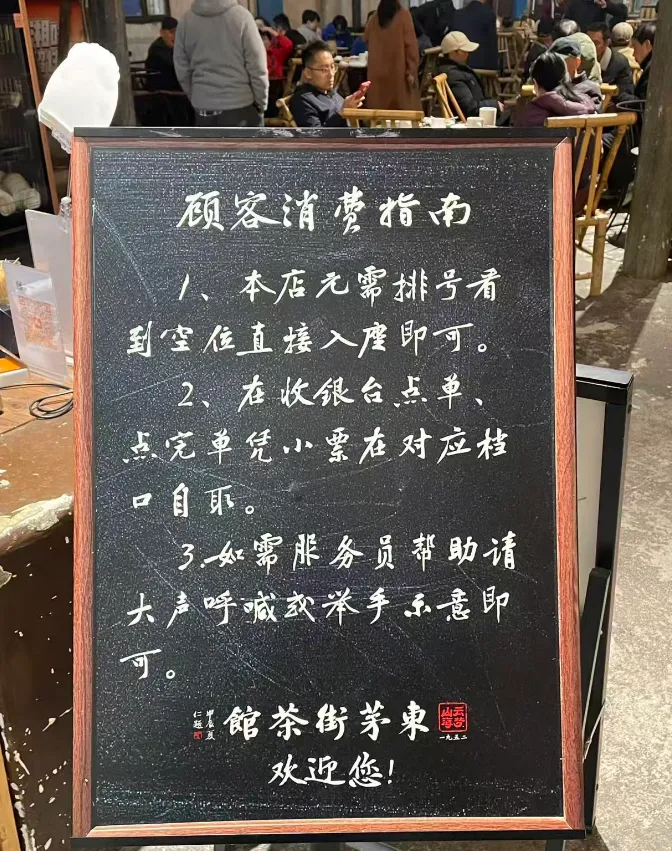 顾客消费指南
1、本店无需排号看
到空位直接入座即可。
2、在收银台点单、
点完单凭小票在对应档
口自取。
3.如需服务员帮助请
大声呼喊或举手示意即
可。
東茅街茶館
一九五二
甲辰夏
仁题
欢迎您!